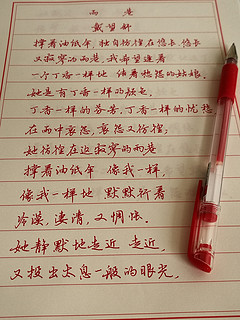 雨巷
戴望舒
撑着油纸伞，独自彷徨在悠长，悠长
又寂寥的雨巷，我希望逢着
一个丁香一样地 结着愁怨的姑娘，
她是有丁香一样的颜色，
丁香一样的芬芳，丁香一样的忧愁
在雨中哀怨，哀怨又彷徨，
她彷徨在这寂寥的雨巷
撑着油纸伞 像我一样，
像我一样地 默默彳亍着
冷漠，凄清，又惆怅。
她静默地走近 走近，
又投出太息一般的眼光，